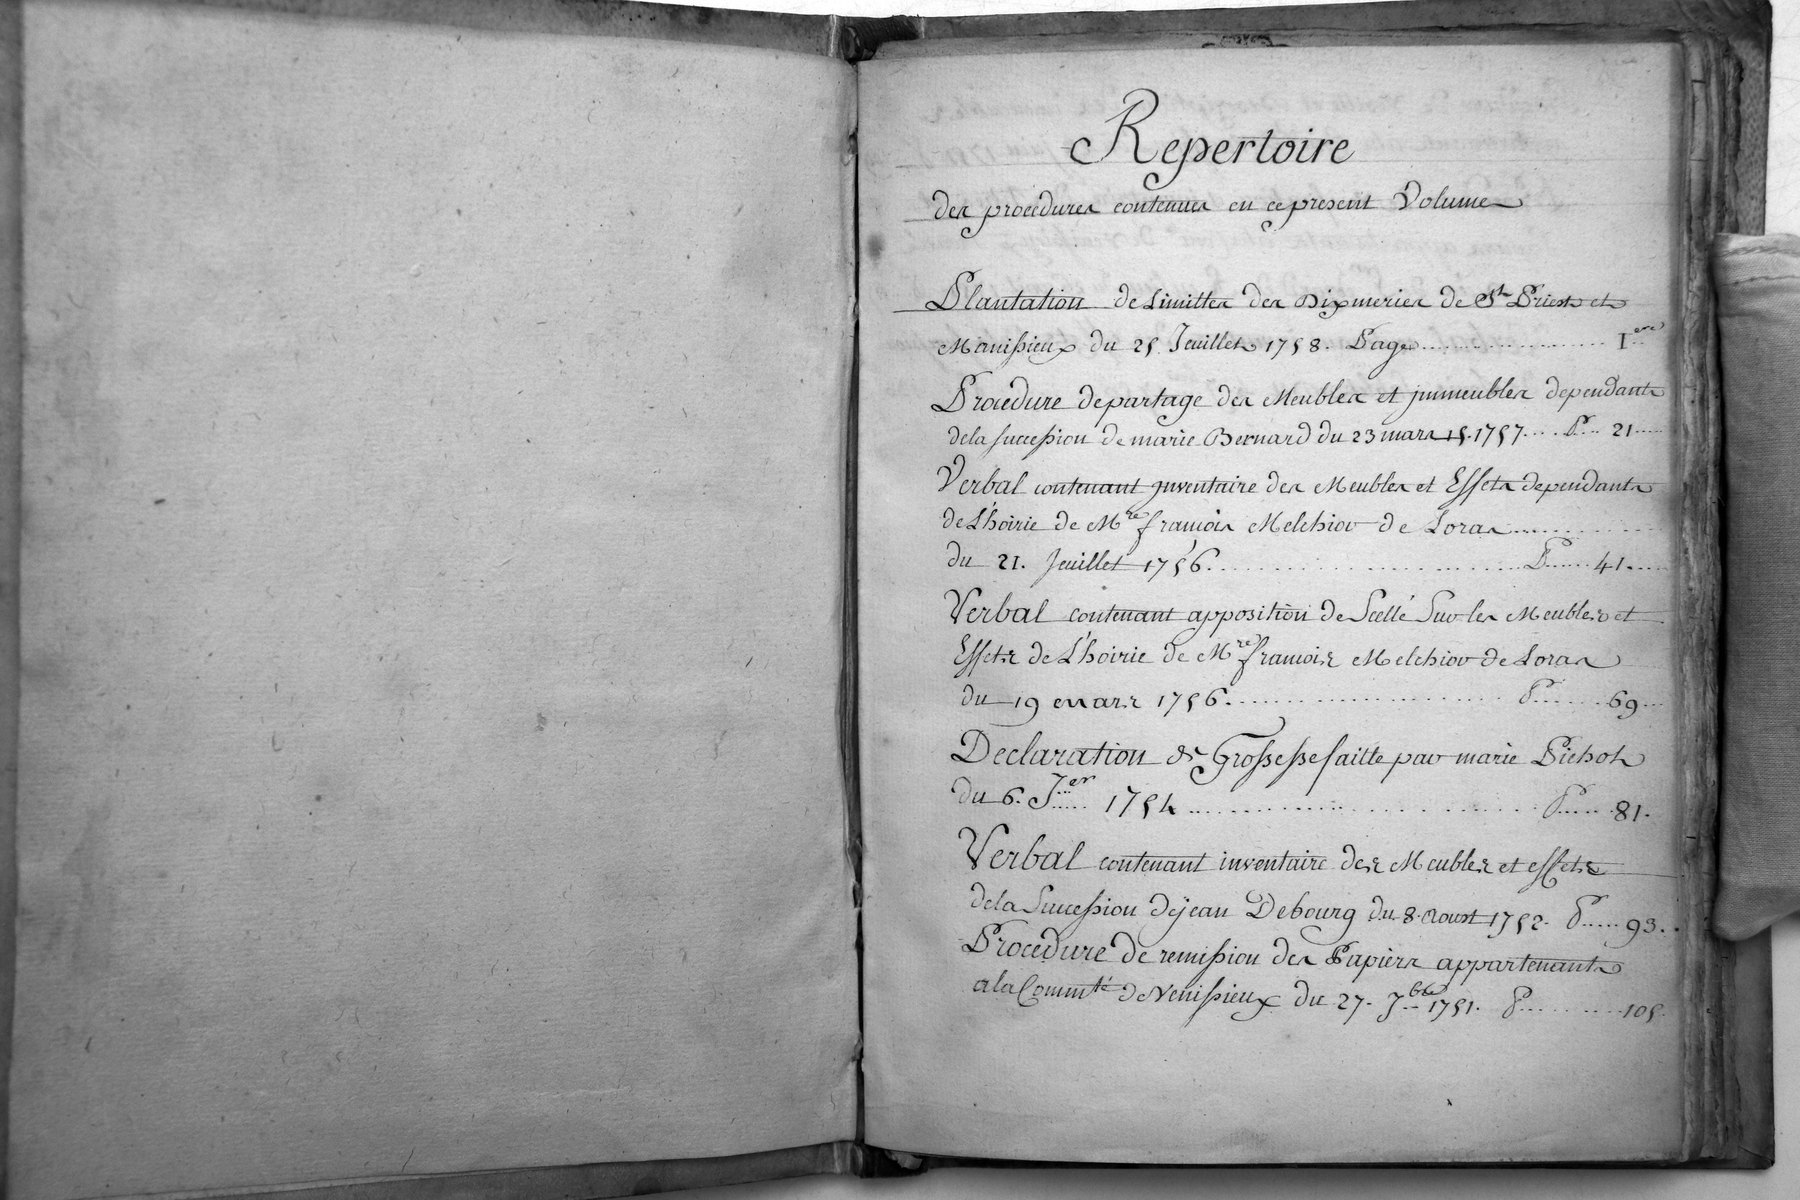 Repertoire
des procedures contenues en ce present Volume
Plantation de Limittes des Dixmeries de St Priest et
Manissieux du 25 Jeuillet 1758. Page .................. 1ere
Procedure de partage des Meubles et jmmeubles dependants
de la succession de marie Bernard du 23 mars 1757..... P.... 21.....
Verbal contenant jnventaire des Meubles et Effets dependants
de L'hoirie de Mre francois Melchior de Loras ............
du 21. Jeuillet 1756. ........................ P...... 41.....
Verbal contenant apposition de Scellé Sur les Meubles et
Effets de L'hoirie de Mre francois Melchior de Loras
du 19 mars 1756. ........................ P....... 69...
Declaration de Grossesse faitte par marie Pichot
du 6. Jer 1754 ........................ P..... 81.
Verbal contenant inventaire des Meubles et effets
de la Succession de jean Debourg du 8. Aoust 1752. P..... 93..
Procedure de remission des Papiers appartenants
a la Commté de Venissieux du 27. 7bre 1751. P......... 105.